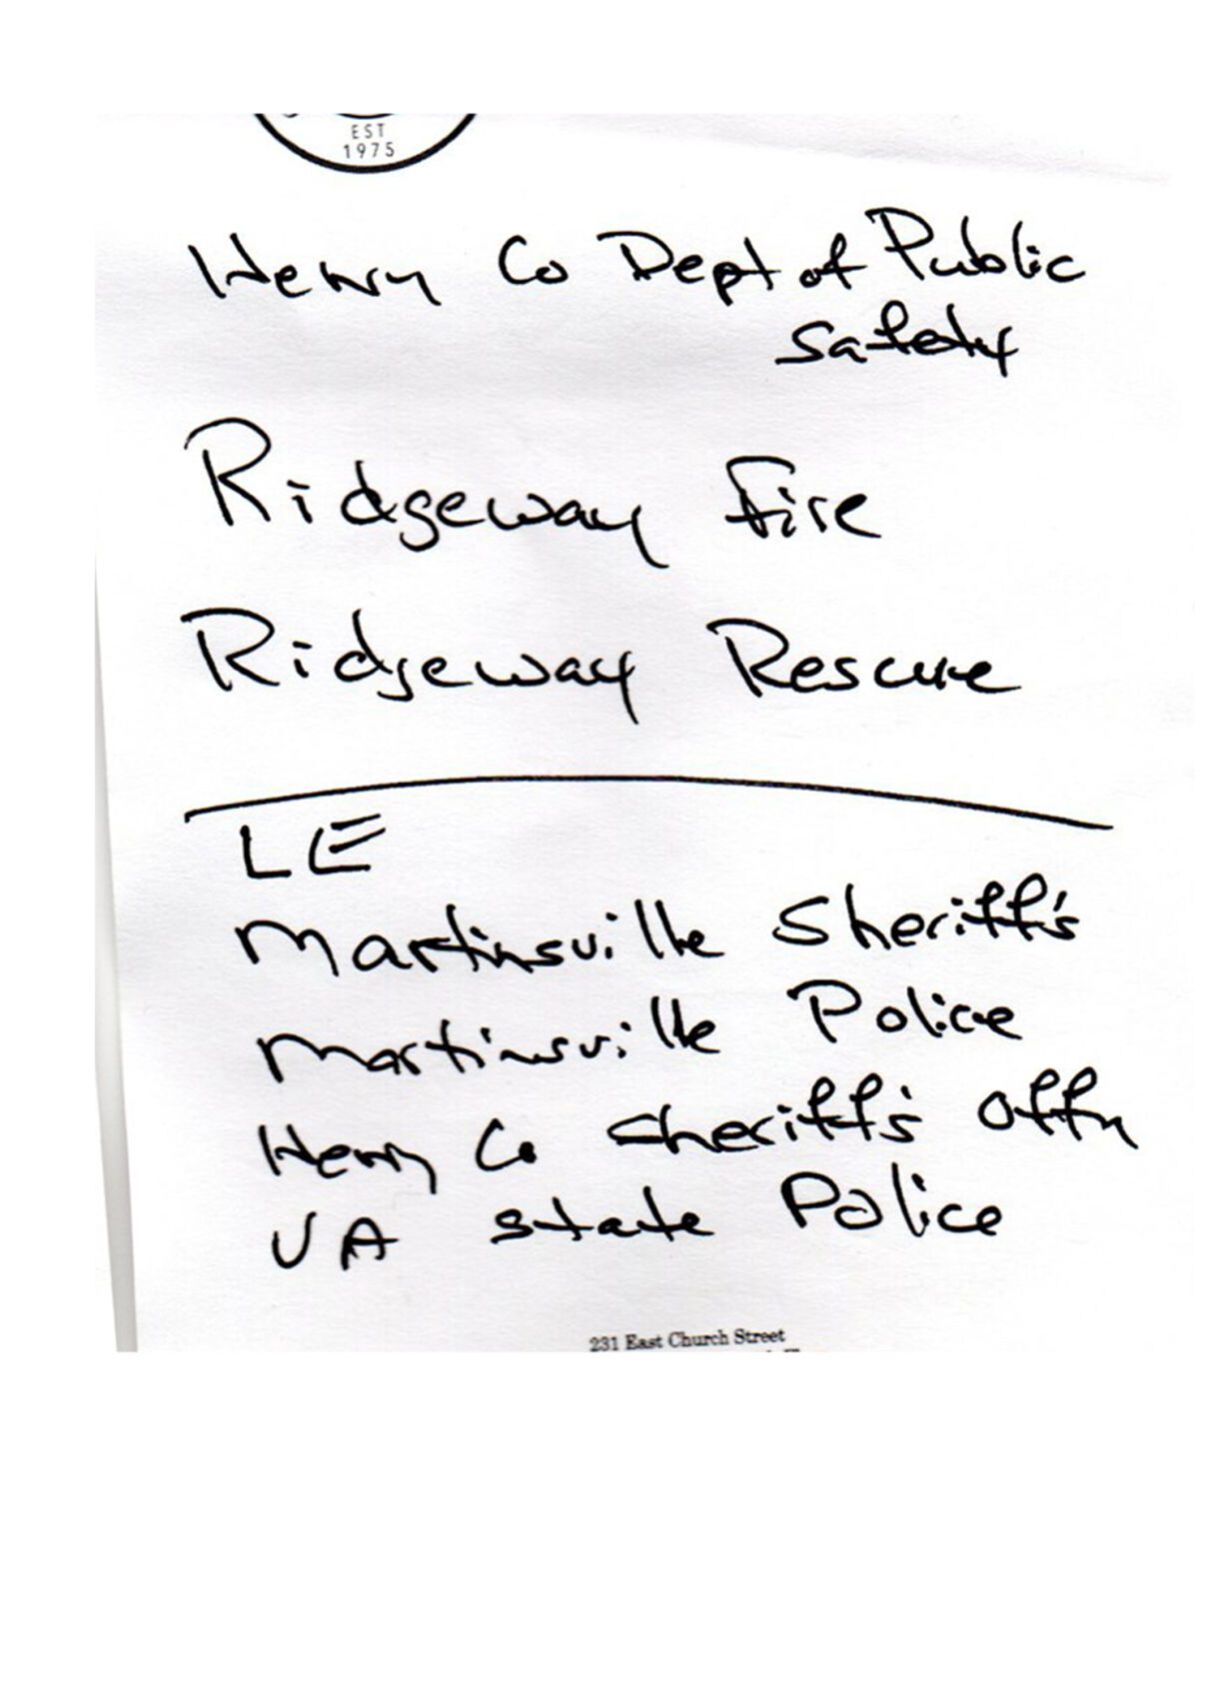 EST
1975
Henry Co Dept of Public
Safety
Ridgeway Fire
Ridgeway Rescue
LE
Martinsville Sheriff's
Martinsville Police
Henry Co Sheriff's
VA State Police
231 East Church Street